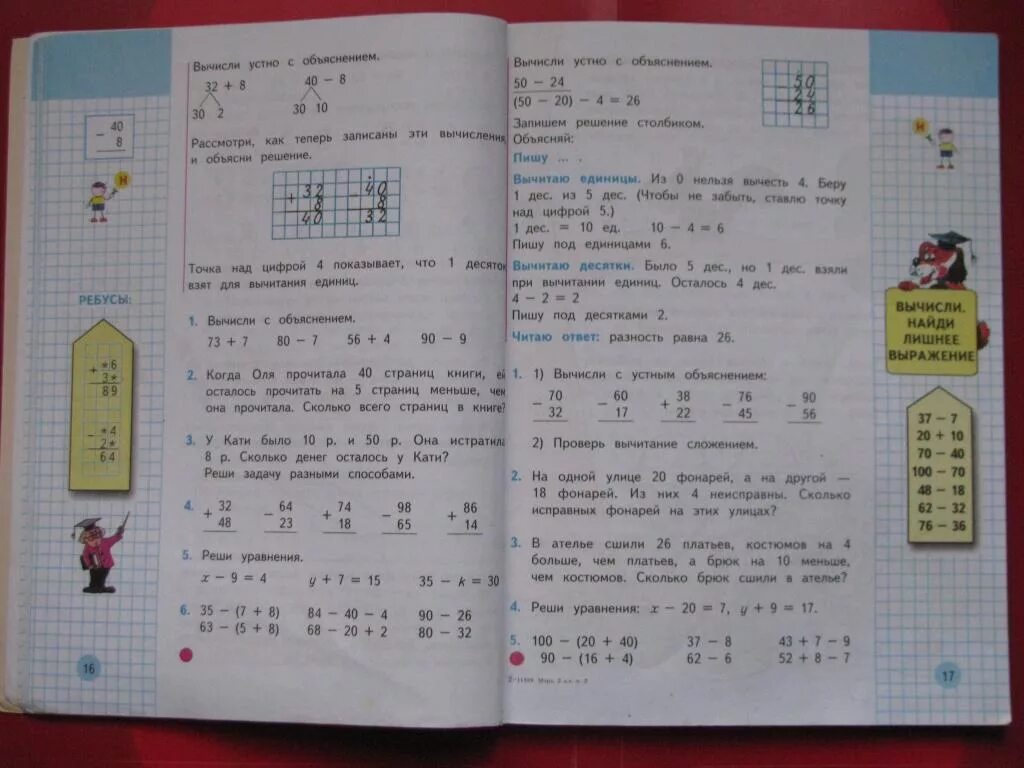 Вычисли устно с объяснением.
32 + 8 40 − 8
30 2 30 10
− 40
8
Рассмотри, как теперь записаны эти вычисления
и объясни решение.
+ 32 − 40
8 8
40 32
Точка над цифрой 4 показывает, что 1 десяток
взят для вычитания единиц.
РЕБУСЫ:
+ *6
3*
89
− *4
2*
64
1. Вычисли с объяснением.
73 + 7 80 − 7 56 + 4 90 − 9
2. Когда Оля прочитала 40 страниц книги, ей
осталось прочитать на 5 страниц меньше, чем
она прочитала. Сколько всего страниц в книге?
3. У Кати было 10 р. и 50 р. Она истратила
8 р. Сколько денег осталось у Кати?
Реши задачу разными способами.
4. + 32 − 64 + 74 − 98 + 86
48 23 18 65 14
5. Реши уравнения.
x − 9 = 4 y + 7 = 15 35 − k = 30
6. 35 − (7 + 8) 84 − 40 − 4 90 − 26
63 − (5 + 8) 68 − 20 + 2 80 − 32
16
Вычисли устно с объяснением.
50 − 24
(50 − 20) − 4 = 26
− 50
24
26
Запишем решение столбиком.
Объясняй:
Пишу ... .
Вычитаю единицы. Из 0 нельзя вычесть 4. Беру
1 дес. из 5 дес. (Чтобы не забыть, ставлю точку
над цифрой 5.)
1 дес. = 10 ед. 10 − 4 = 6
Пишу под единицами 6.
Вычитаю десятки. Было 5 дес., но 1 дес. взяли
при вычитании единиц. Осталось 4 дес.
4 − 2 = 2
Пишу под десятками 2.
Читаю ответ: разность равна 26.
1. 1) Вычисли с устным объяснением:
− 70 − 60 + 38 − 76 − 90
32 17 22 45 56
2) Проверь вычитание сложением.
2. На одной улице 20 фонарей, а на другой —
18 фонарей. Из них 4 неисправны. Сколько
исправных фонарей на этих улицах?
3. В ателье сшили 26 платьев, костюмов на 4
больше, чем платьев, а брюк на 10 меньше,
чем костюмов. Сколько брюк сшили в ателье?
4. Реши уравнения: x − 20 = 7, y + 9 = 17.
5. 100 − (20 + 40) 37 − 8 43 + 7 − 9
90 − (16 + 4) 62 − 6 52 + 8 − 7
ВЫЧИСЛИ.
НАЙДИ
ЛИШНЕЕ
ВЫРАЖЕНИЕ
37 − 7
20 + 10
70 − 40
100 − 70
48 − 18
62 − 32
76 − 36
17